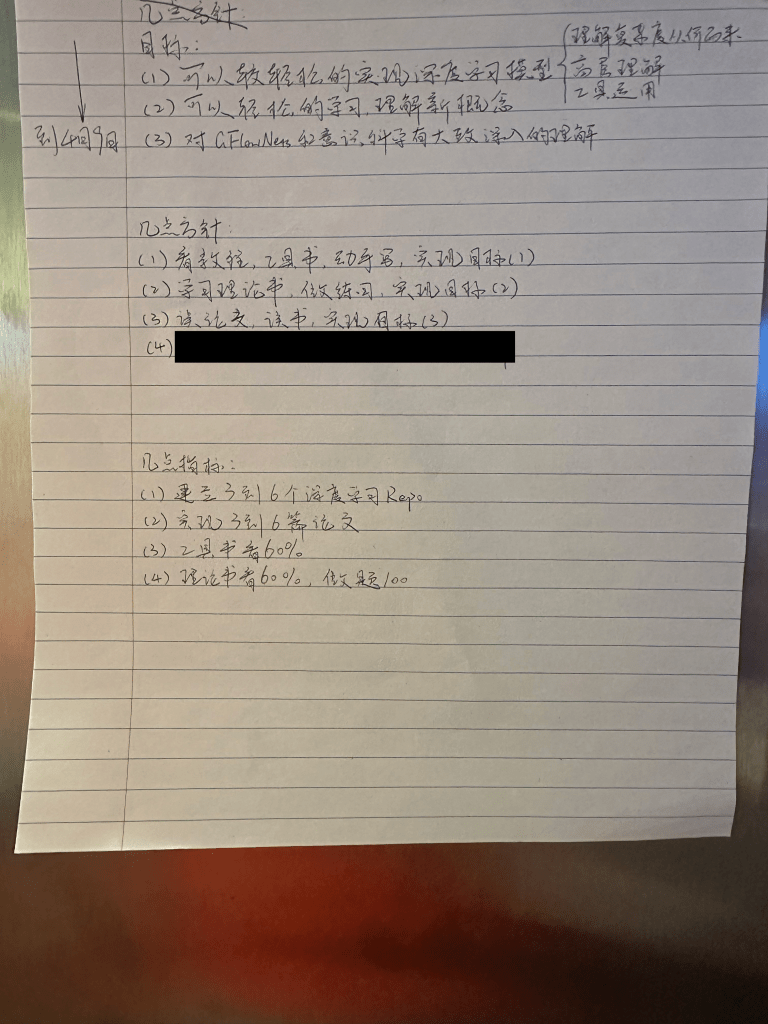 几点方针:
目标:
(1) 可以较轻松的实现深度学习模型
理解复杂度从何而来
高层理解
工具运用
(2) 可以轻松的学习,理解新概念
到4月9日
(3) 对GFlowNets和意识科学有大致深入的理解
几点方针:
(1) 看教程,工具书,动手写,实现目标(1)
(2) 学习理论书,做练习,实现目标(2)
(3) 读论文,读书,实现目标(3)
(4)
几点指标:
(1) 建立3到6个深度学习Repo
(2) 实现3到6篇论文
(3) 工具书看60%
(4) 理论书看60%,做题100